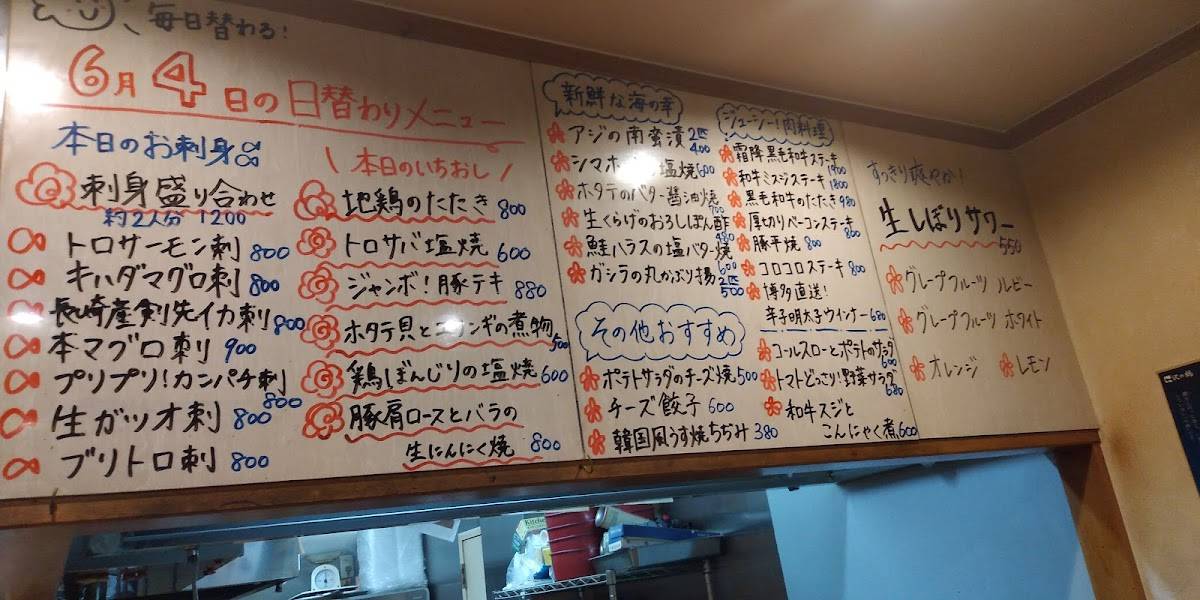 毎日替わる!
6月4日の日替わりメニュー
本日のお刺身
刺身盛り合わせ
約2人分 1200
トロサーモン刺 800
キハダマグロ刺 800
長崎産剣先イカ刺 800
本マグロ刺 900
プリプリ!カンパチ刺 800
生ガツオ刺 800
ブリトロ刺 800
\ 本日のいちおし /
地鶏のたたき 800
トロサバ塩焼 600
ジャンボ!豚テキ 880
ホタテ貝とエリンギの煮物 500
鶏ぼんじりの塩焼 600
豚肩ロースとバラの
生にんにく焼 800
新鮮な海の幸
アジの南蛮漬 2匹 400
シマホ の塩焼 600
ホタテのバター醤油焼 700
生くらげのおろしぽん酢 480
鮭ハラスの塩バター焼 600
ガシラの丸かぶり揚 2匹 500
その他おすすめ
ポテトサラダのチーズ焼 500
チーズ餃子 600
韓国風うす焼ちぢみ 380
ジューシー!肉料理
霜降黒毛和牛ステーキ 1900
和牛ミスジステーキ 1800
黒毛和牛のたたき 980
厚切りベーコンステーキ 800
豚平焼 800
コロコロステーキ 800
博多直送!
辛子明太子ウインナー 680
コールスローとポテトのサラダ 600
トマトどっさり!野菜サラダ 680
和牛スジと
こんにゃく煮 600
すっきり爽やか!
生しぼりサワー 550
グレープフルーツ ルビー
グレープフルーツ ホワイト
オレンジ
レモン